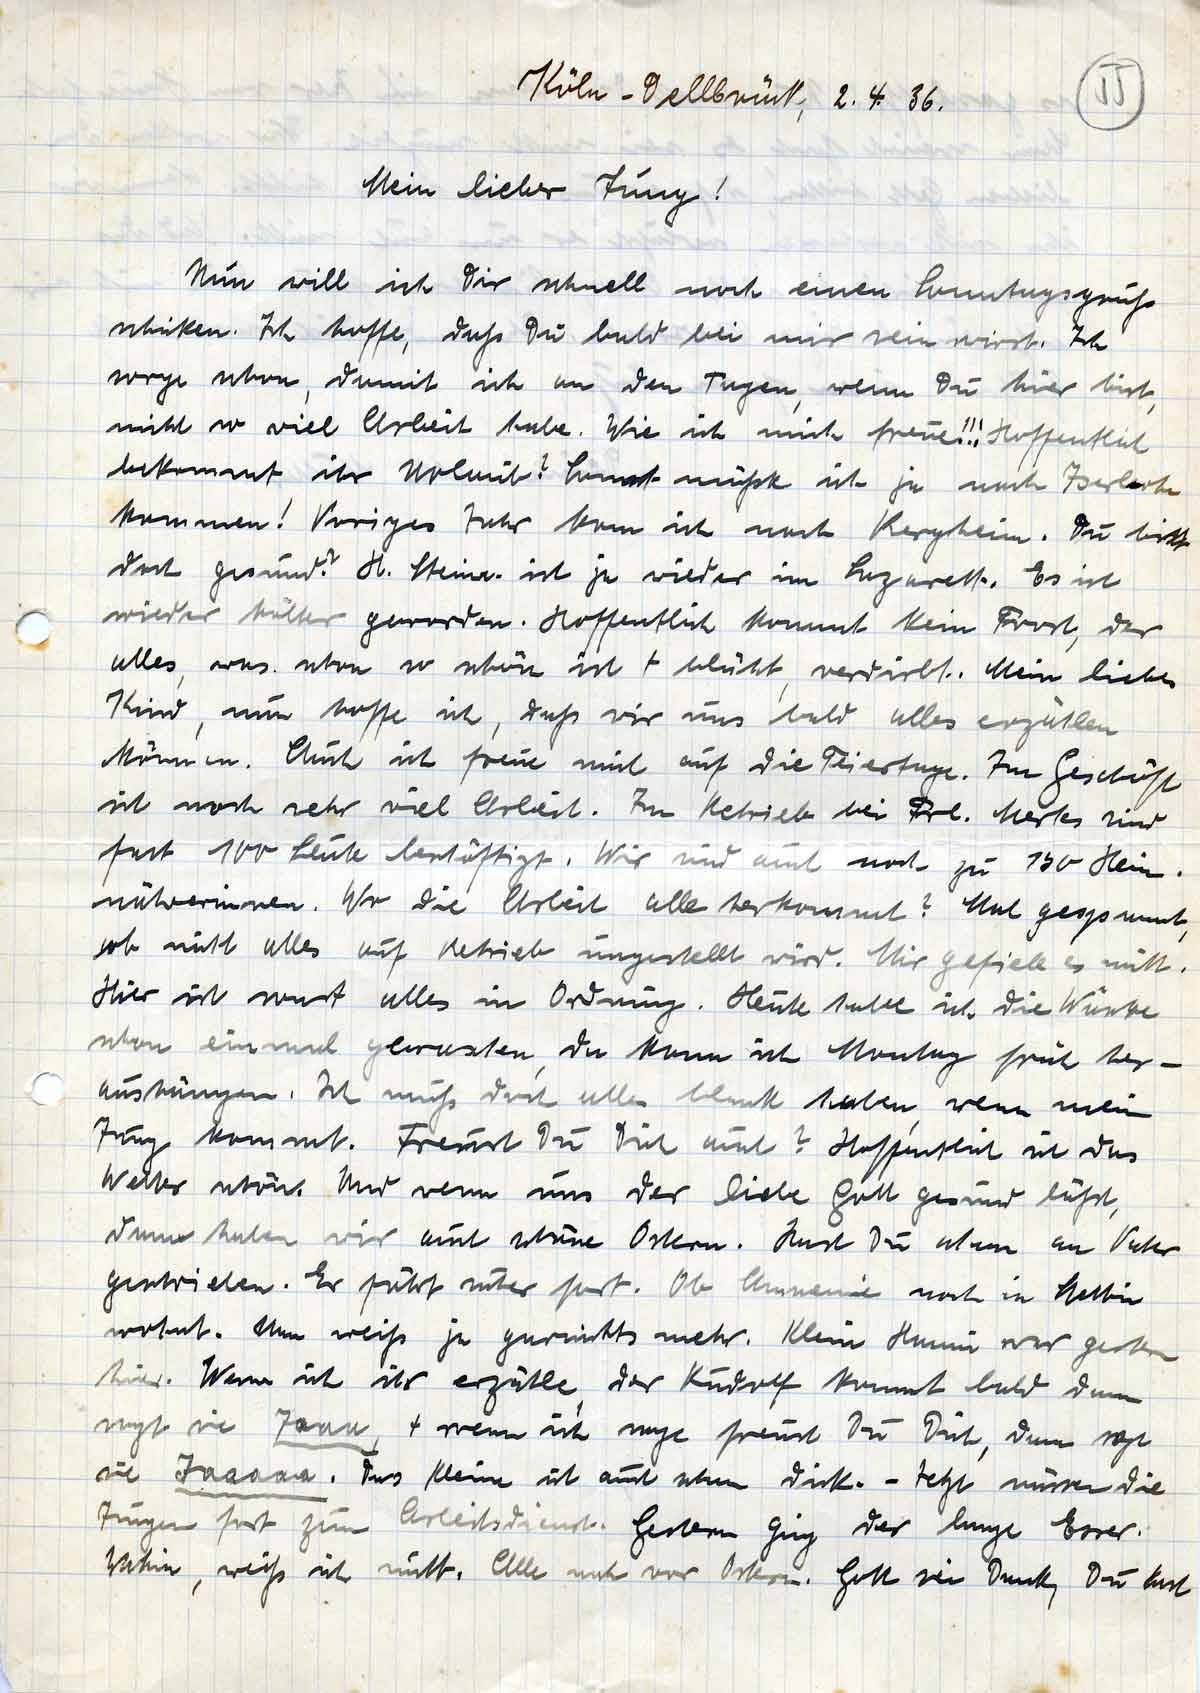 Köln-Dellbrück, 2.4.36.
II
Mein lieber Jung!
Nun will ich Dir schnell noch einen Sonntagsgruß
schicken. Ich hoffe, daß Du bald bei mir sein wirst. Ich
sorge schon, damit ich an den Tagen, wenn Du hier bist,
nicht so viel Arbeit habe. Wie ich mich freue!!! Hoffentlich
bekommt ihr Urlaub? Sonst müßte ich ja nach Iserlohn
kommen! Voriges Jahr kam ich nach Bergheim. Du bist
doch gesund? H. Steinw. ist ja wieder im Lazarett. Es ist
wieder kälter geworden. Hoffentlich kommt kein Frost, der
alles, was schon so schön ist + blüht, verdirbt. Mein liebes
Kind, nun hoffe ich, daß wir uns bald alles erzählen
können. Auch ich freue mich auf die Feiertage. Im Geschäft
ist noch sehr viel Arbeit. Im Betrieb bei Frl. Merks sind
fast 100 Leute beschäftigt. Wir sind auch noch zu 130 Heim-
näherinnen. Wo die Arbeit alle herkommt? Mal gespannt,
ob nicht alles auf Betrieb umgestellt wird. Mir gefiele es nicht.
Hier ist sonst alles in Ordnung. Heute habe ich die Wäsche
schon einmal gewaschen, da kann ich Montag früh her-
aushängen. Ich muß doch alles blank haben, wenn mein
Jung kommt. Freust Du Dich auch? Hoffentlich ist das
Wetter schön. Und wenn uns der liebe Gott gesund läßt,
dann haben wir auch schöne Ostern. Hast Du schon an Vater
geschrieben. Er fährt sicher fort. Ob Annemie noch in Stettin
wohnt. Man weiß ja garnichts mehr. Klein Hanni war gestern
hier. Wenn ich ihr erzähle, der Rudolf kommt bald dann
sagt sie Jaaa, + wenn ich sage freust Du Dich, dann sagt
sie Jaaaaa. Das Kleine ist auch schon dick. - Jetzt müssen die
Jungen fort zum Arbeitsdienst. Gestern ging der lange Esser.
Wohin, weiß ich nicht. Alle noch vor Ostern. Gott sei Dank, Du hast